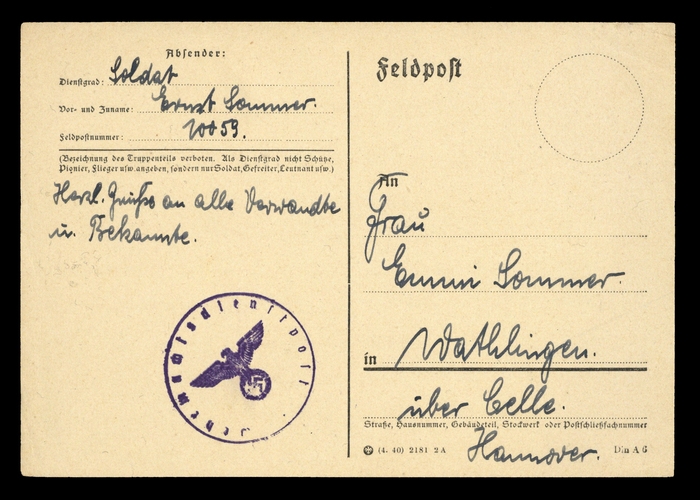 Absender:
Dienstgrad: Soldat
Vor- und Zuname: Ernst Sommer.
Feldpostnummer: 20059.
(Bezeichnung des Truppenteils verboten. Als Dienstgrad nicht Schütze,
Pionier, Flieger usw. angeben, sondern nur Soldat, Gefreiter, Leutnant usw.)
Herzl. Grüße an alle Verwandte
u. Bekannte.
Feldpost
An
Frau
Emmi Sommer.
in Wathlingen.
über Celle.
Straße, Hausnummer, Gebäudeteil, Stockwerk oder Postschließfachnummer
Hannover.
(4. 40) 2181 2A Din A 6